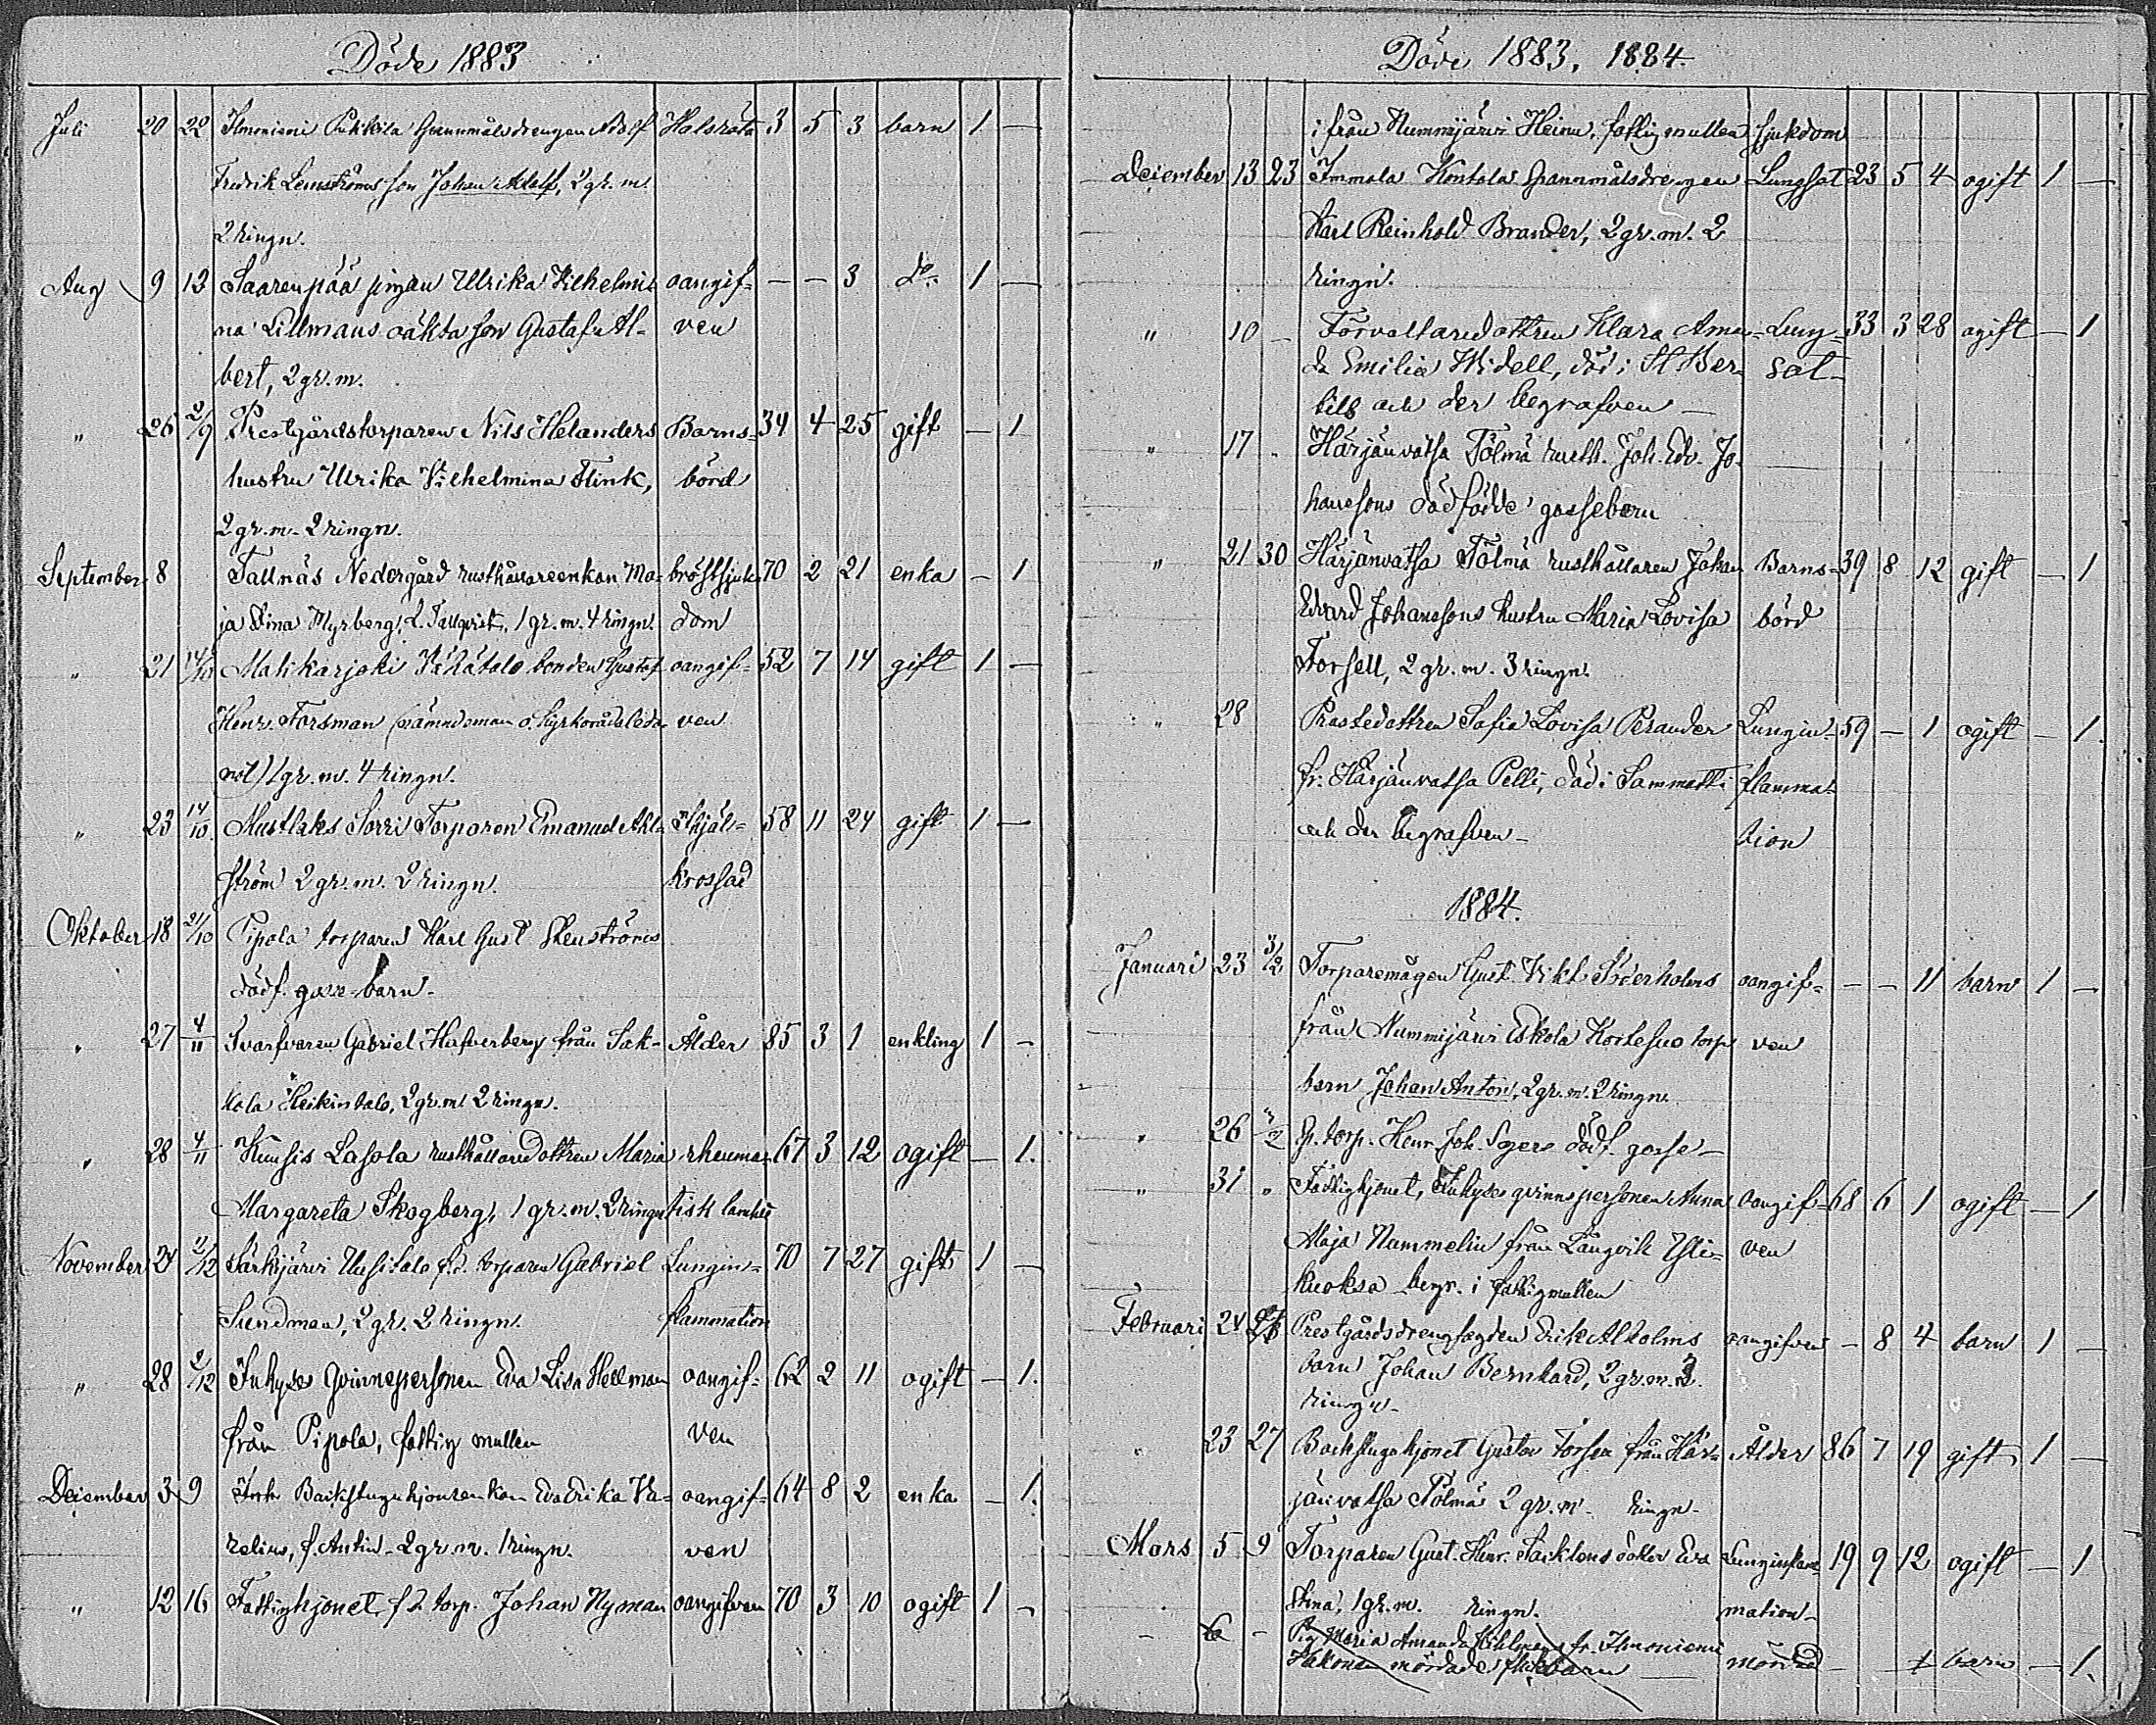 Döde 1883
Juli 20 22 Ilmoniemi Pukkila Grannmålsdrengen Adolf Halsröta 3 5 3 barn 1 —
Fredrik Lemströms son Johan Adolf, 2 gr. m.
2 ringn.
Aug 9 12 Saarenpää pigan Ulrika Vilhelmi- oangif- — — 3 do 1 —
na Lillmans oäkta son Gustaf Al- ven
bert, 2 gr. m.
" 26 2/9 Prestgårdstorparen Nils Helanders Barns- 34 4 25 gift — 1
hustru Ulrika Vilhelmina Flink, börd
2 gr. m. 2 ringn.
September 8 Tallnäs Nedergård rusthållareenkan Ma- bröstsjuk- 70 2 21 enka — 1
ja Stina Myrberg, f. Tallqvist, 1 gr. m. 4 ringn. dom
" 21 14/10 Mahkarjoki Vähätalo bonden Gustaf oangif- 52 7 14 gift 1 —
Henr. Forsman (nämndeman o. kyrkorådsleda- ven
mot) 1 gr. m. 4 ringn.
" 23 14/10 Mustlaks Sorri Torparen Emanuel Ahl- Ihjäl- 58 11 24 gift 1 —
ström 2 gr. m. 2 ringn. krossad
Oktober 18 21/10 Pipola torparen Karl Gust Stenströms
dödf. gosse-barn-
" 27 4/11 Svarfvaren Gabriel Hafverberg från Sak- Ålder 85 3 1 enkling 1 -
kola Heikintalo, 2 gr. m 2 ringn.
" 28 4/11 Kuusis Lasola rusthållaredottren Maria rheuma- 67 3 12 ogift — 1.
Margareta Skogberg, 1 gr. m. 2 ringn tisk
November 24 2/12 Särkijärvi Uusitalo f.d. torparen Gabriel Lungin- 70 7 27 gift 1 —
Sundman, 2 gr. 2 ringn. flammation
" 28 2/12 Inhyses qvinnspersonen Eva Lisa Hellman oangif- 62 2 11 ogift — 1.
från Pipola, fattig mullen ven
December 3 9 Backstuguhjonsenkan Eva Erika Va- oangif- 64 8 2 enka — 1.
relius, f. Antin - 2 gr. m. 1 ringn. ven
" 12 16 Fattighjonet, f d torp. Johan Nyman oangifven 70 3 10 ogift 1 -
Döde 1883, 1884.
ifrån Nummijärvi Heinu, fattig mullen sjukdom
December 13 23 Immola Kontola Grannmålsdrengen Lungsot 23 5 4 ogift 1 —
Karl Reinhold Brander, 2 gr. m. 2
ringn.
" 10 — Förvaltaredottren Klara Aman- Lung- 33 3 28 ogift — 1
da Emilia Widell, död i St Ber- sot-
tils och der begrafven —
" 17 - Härjänvatsa Tölmä rusth. Joh. Edv. Jo-
hanssons dödfödde gossebarn
" 21 30 Härjänvatsa Tölmä rusthållaren Johan Barns- 39 8 12 gift — 1
Edvard Johanssons hustru Maria Lovisa börd
Forsell, 2 gr. m. 3 ringn.
" 28 Prostedottren Sofia Lovisa Perander Lungin- 59 — 1 ogift — 1.
fr. Härjänvatsa Pelli, död i Sammatti flamma-
och der begrafven — tion
1884.
Januari 23 3/2 Torparemågen Gust. Vikt Söderholms oangif- — — 11 barn 1 —
från Nummijärvi Eskola Kortesuo torp ven
barn Johan Anton, 2 gr. m. 2 ringn.
" 26 3/2 torp. Henr. Joh. dödf. gosse —
" 31 " Fattighjonet, Inhyses qvinnspersonen Anna oangif- 68 6 1 ogift — 1
Maja Nummelin från Långvik Yli- ven
kuoksa begr. i fattigmullen
Februari 24 Prestgårdsdrenglegden Erik Alholms oangifven — 8 4 barn 1 —
barn Johan Bernhard, 2 gr. m. 2.
ringn-
" 23 27 Backstuguhjonet Gustav Forsen från Här- Ålder 86 7 19 gift 1 —
jänvatsa Tölmä 2 gr. m. ringn-
Mars 5 9 Torparen Gust. Henr. dotter Eva Lunginflam- 19 9 12 ogift — 1
Stina, 1 gr. m. ringn. mation-
- 6 - Pig. Maria Amanda fr. Ilmoniemi
Hakonen mördade flickbarn — mördad — 1 barn — 1.